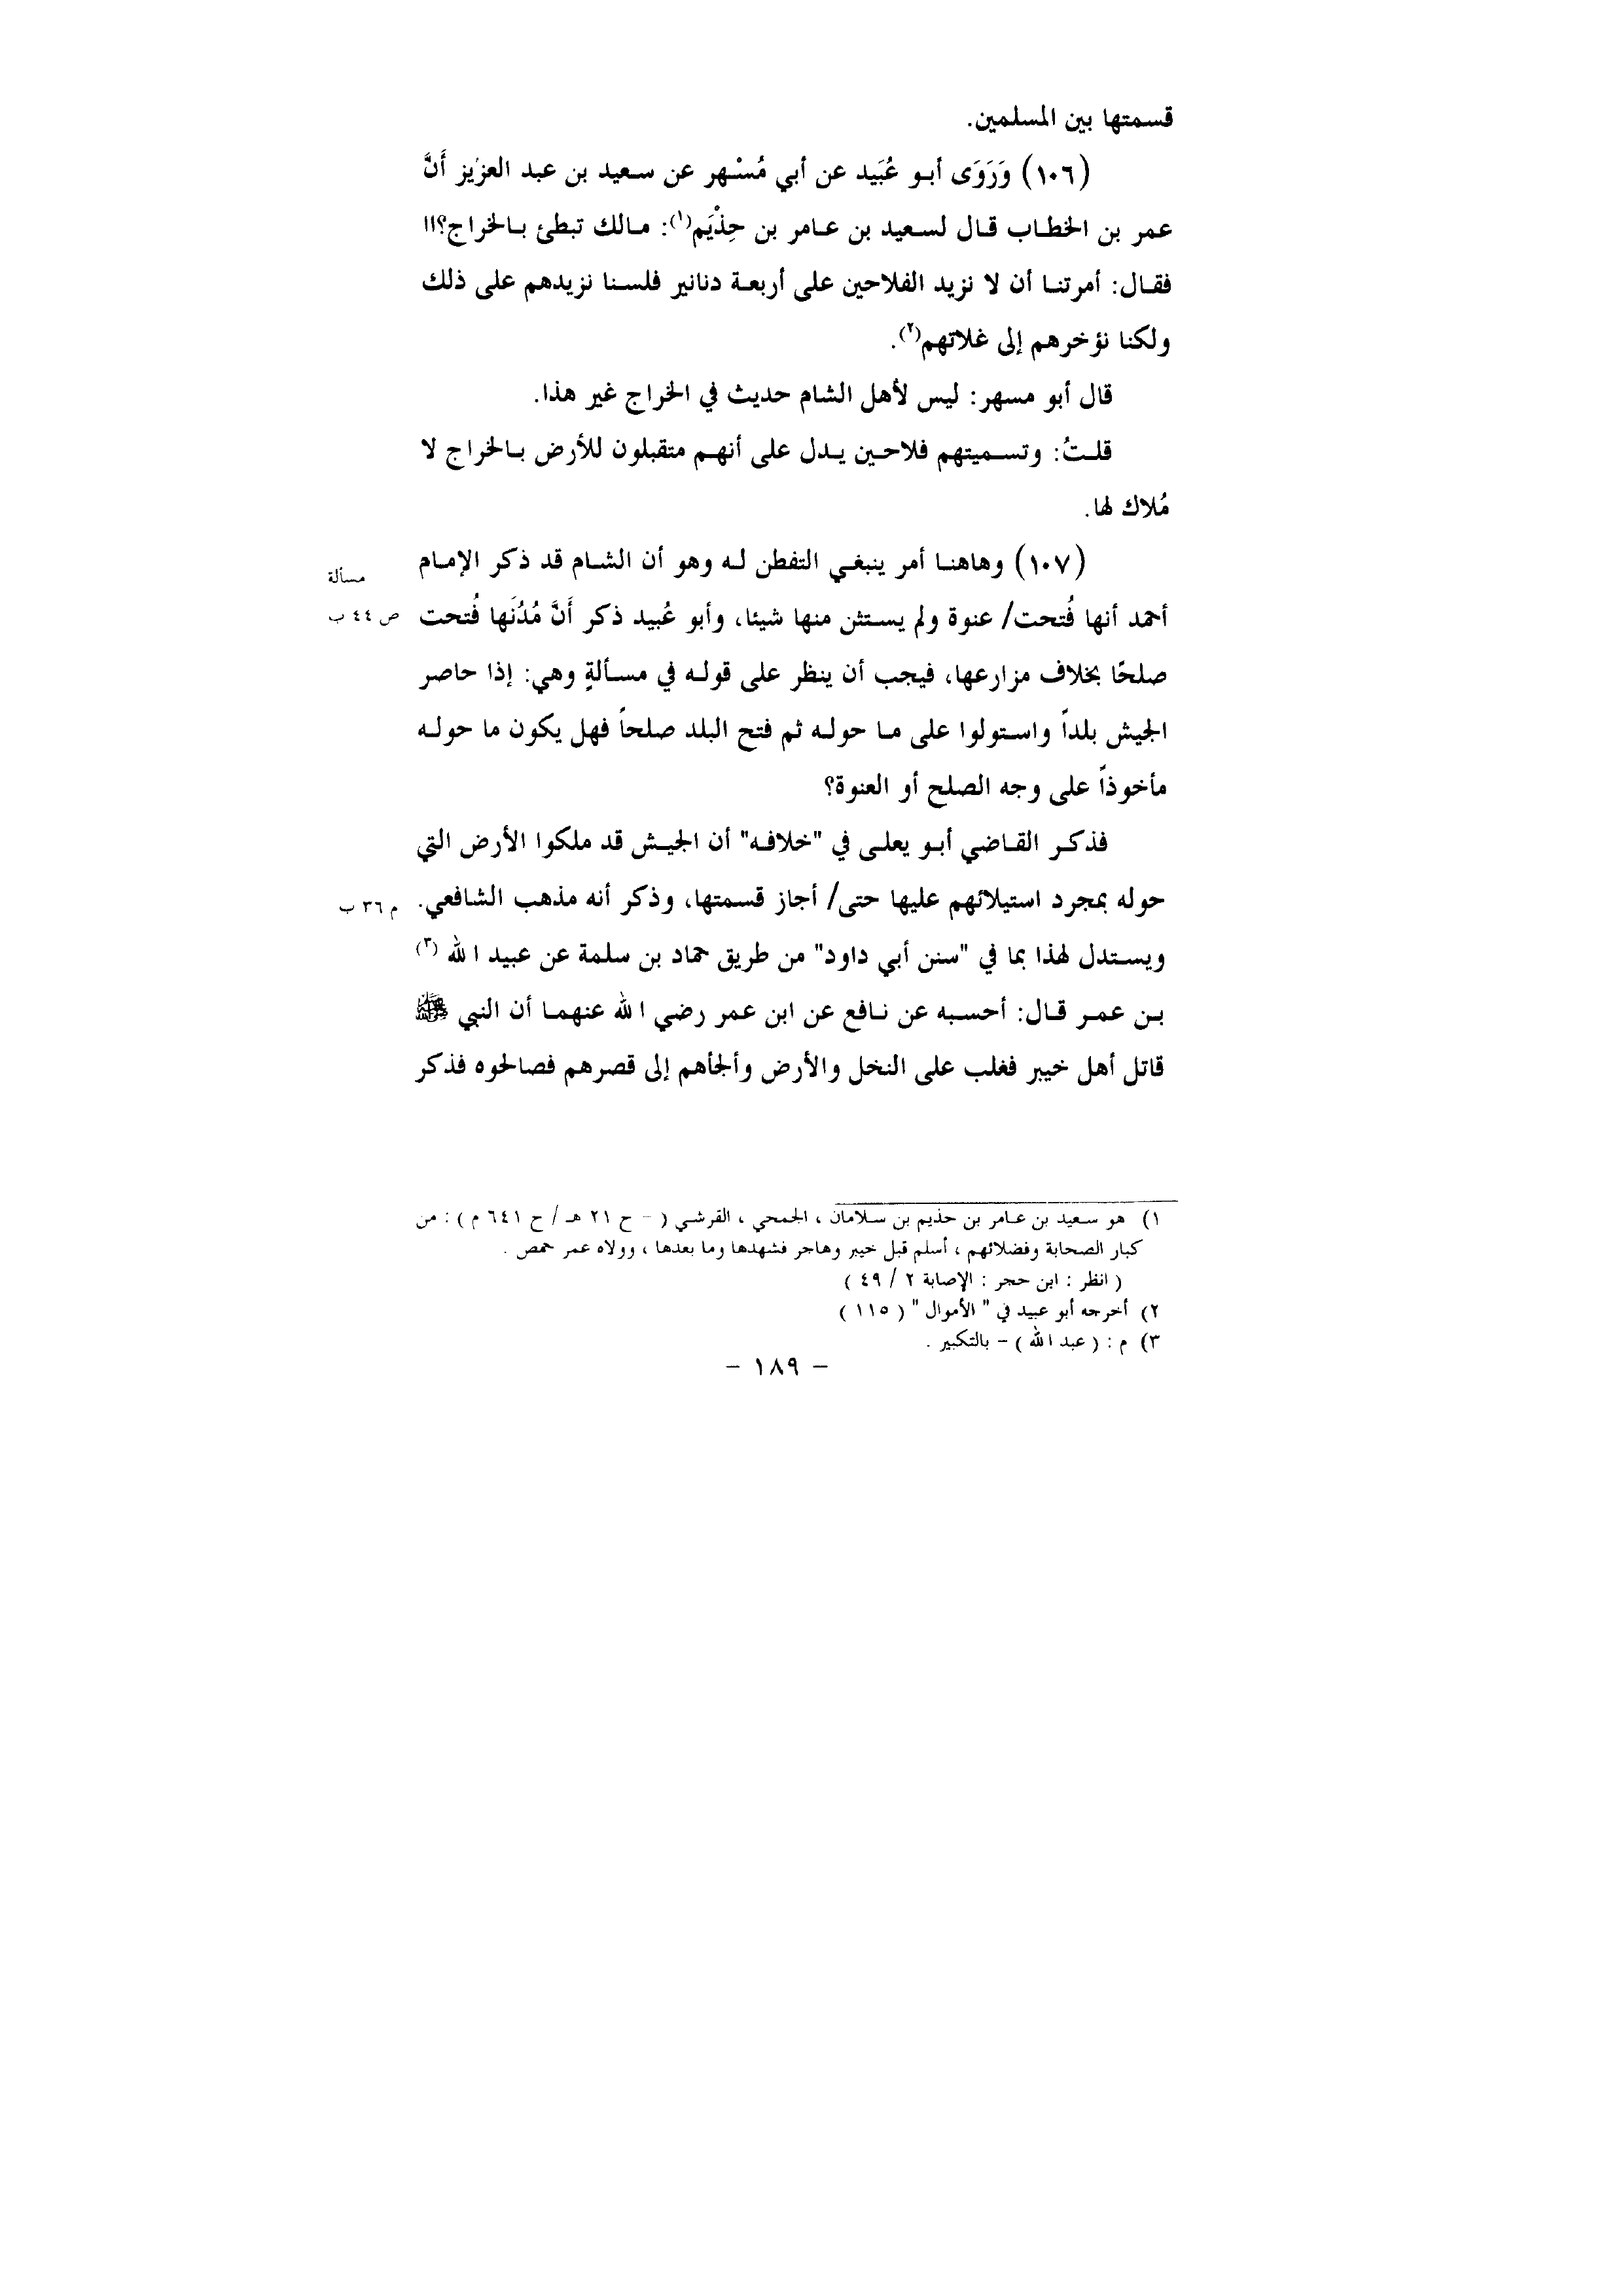 قسمتها بين المسلمين.
(١٠٦) وَرَوَى أبو عُبَيد عن أبي مُسْهر عن سعيد بن عبد العزيز أَنَّ
عمر بن الخطاب قال لسعيد بن عامر بن حِذْيَم(١): مالك تبطئ بالخراج؟!!
فقال: أمرتنا أن لا نزيد الفلاحين على أربعة دنانير فلسنا نزيدهم على ذلك
ولكنا نؤخرهم إلى غلاتهم(٢).
قال أبو مسهر: ليس لأهل الشام حديث في الخراج غير هذا.
قلتُ: وتسميتهم فلاحين يدل على أنهم متقبلون للأرض بالخراج لا
مُلاك لها.
(١٠٧) وهاهنا أمر ينبغي التفطن له وهو أن الشام قد ذكر الإمام
مسألة
أحمد أنها فُتحت/ عنوة ولم يستثن منها شيئا، وأبو عُبيد ذكر أَنَّ مُدُنَها فُتحت
ص ٤٤ ب
صلحًا بخلاف مزارعها، فيجب أن ينظر على قوله في مسألةٍ وهي: إذا حاصر
الجيش بلداً واستولوا على ما حوله ثم فتح البلد صلحاً فهل يكون ما حوله
مأخوذاً على وجه الصلح أو العنوة؟
فذكر القاضي أبو يعلى في "خلافه" أن الجيش قد ملكوا الأرض التي
حوله بمجرد استيلائهم عليها حتى/ أجاز قسمتها، وذكر أنه مذهب الشافعي.
م ٣٦ ب
ويستدل لهذا بما في "سنن أبي داود" من طريق حماد بن سلمة عن عبيد الله (٣)
بن عمر قال: أحسبه عن نافع عن ابن عمر رضي الله عنهما أن النبي ﷺ
قاتل أهل خيبر فغلب على النخل والأرض وألجأهم إلى قصرهم فصالحوه فذكر
١) هو سعيد بن عامر بن حذيم بن سلامان ، الجمحي ، القرشي ( - ح ٢١ هـ / ح ٦٤١ م ) : من
كبار الصحابة وفضلائهم ، أسلم قبل خيبر وهاجر فشهدها وما بعدها ، وولاه عمر حمص .
( انظر : ابن حجر : الإصابة ٢ / ٤٩ )
٢) أخرجه أبو عبيد في " الأموال " ( ١١٥ )
٣) م : ( عبد الله ) - بالتكبير .
- ١٨٩ -